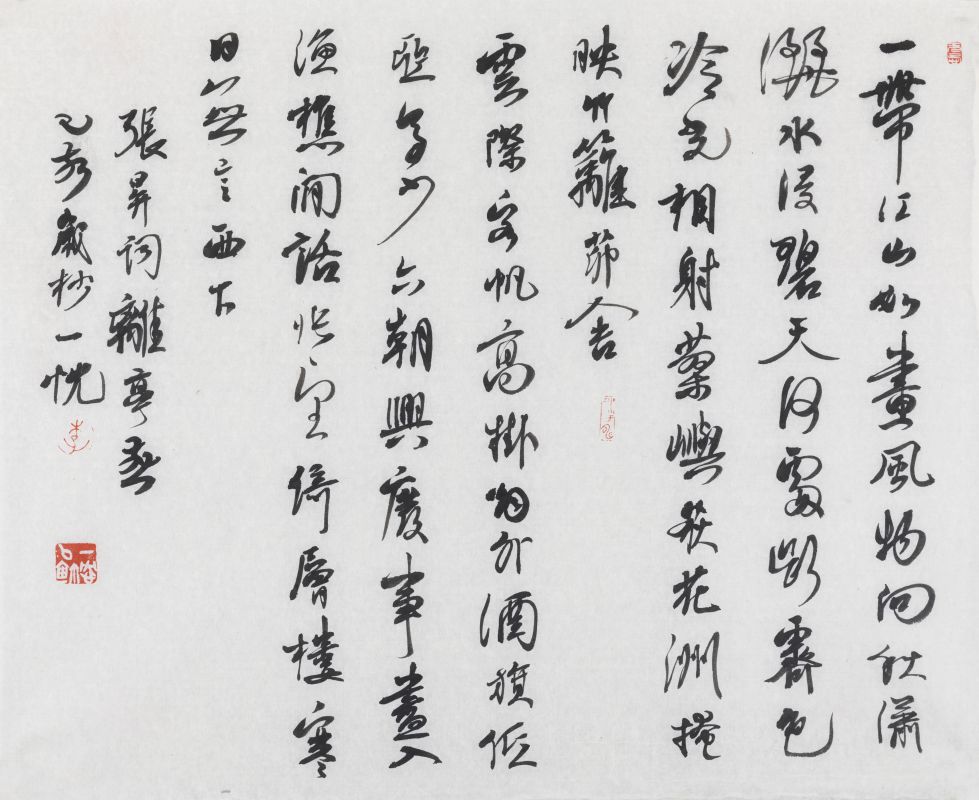 一帶江山如畫風物向秋瀟
灑水浸碧天何處斷霽色
冷光相射蓼嶼荻花洲掩
映竹籬茅舍
雲際客帆高掛烟外酒旗低
亞多少六朝興廢事盡入
漁樵閒話悵望倚層樓寒
日無言西下
張昇詞離亭燕
己亥歲杪一